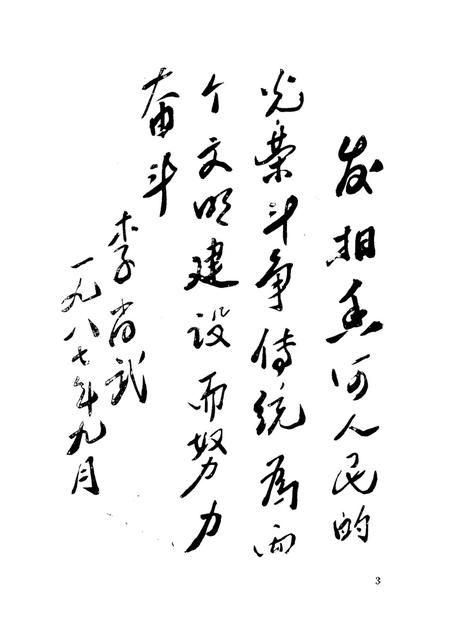 发扬香河人民的
光荣斗争传统为两
个文明建设而努力
奋斗
李尚武
一九八七年九月
3